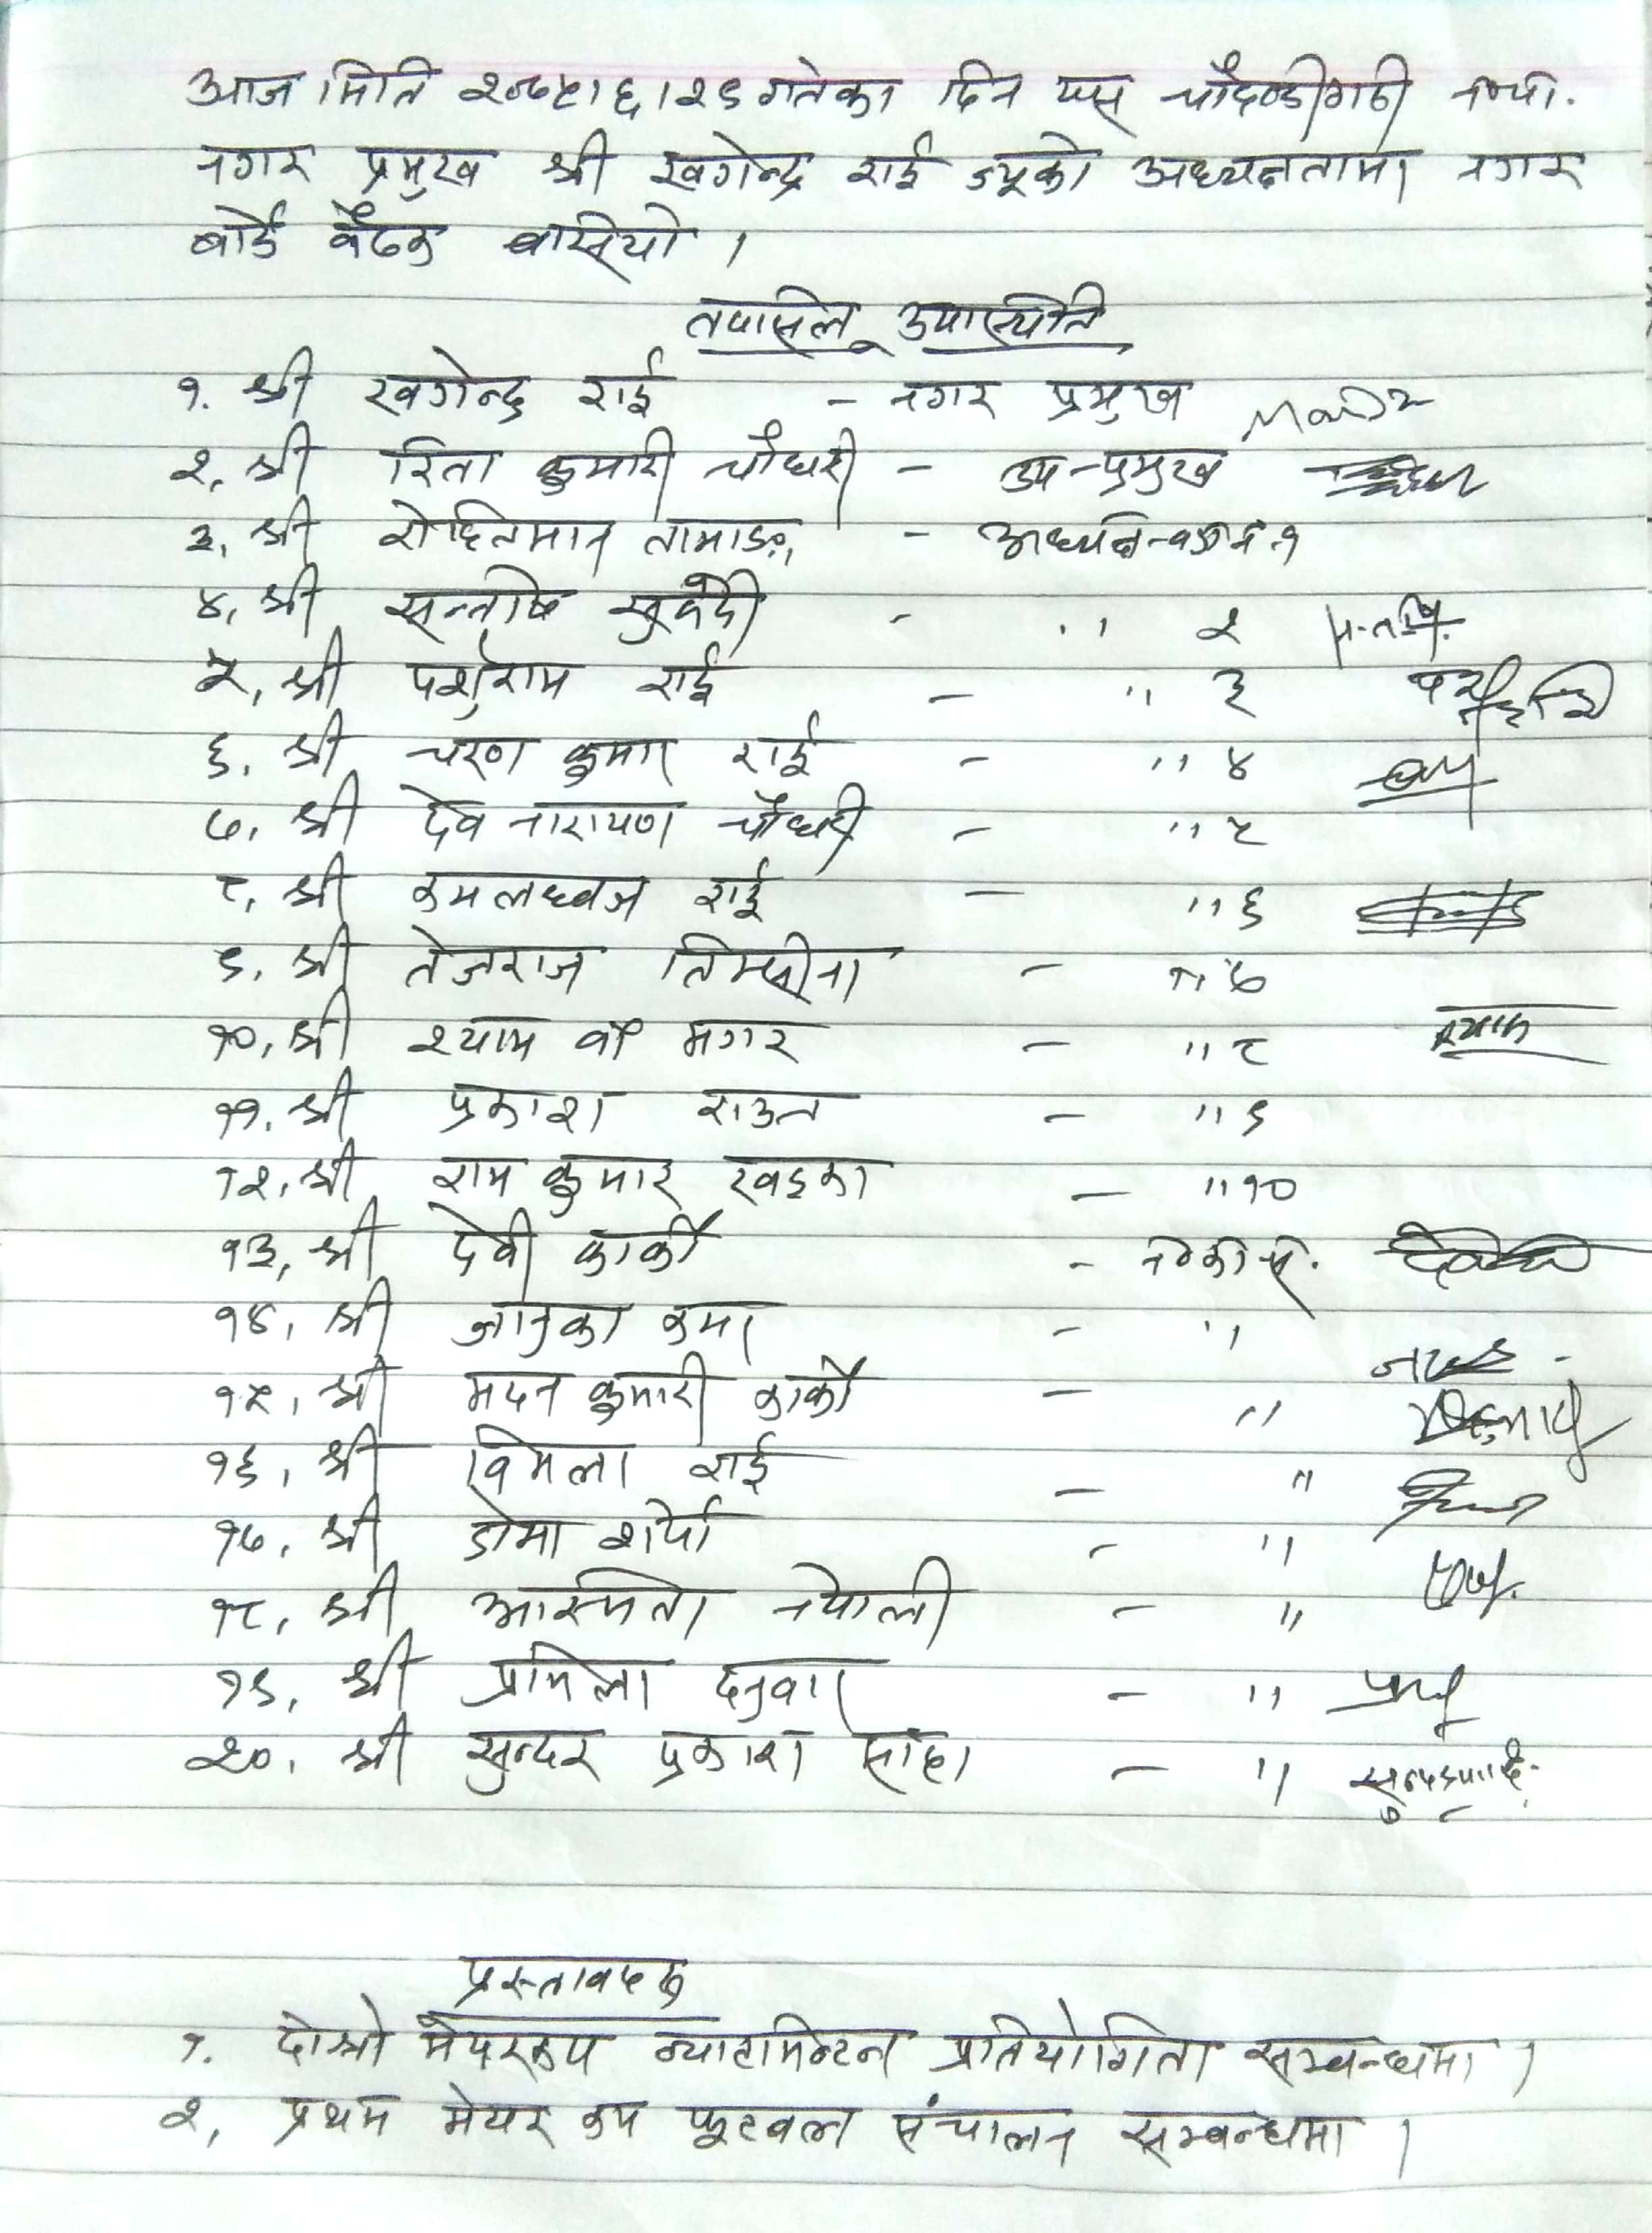 आज मिति २०७५।६।२६ गतेका दिन यस चौदण्डीगढी न.पा.
नगर प्रमुख श्री खगेन्द्र राई ज्यूको अध्यक्षतामा नगर
बोर्ड बैठक बसियो ।
तपासिल उपास्थिति
१. श्री खगेन्द्र राई - नगर प्रमुख
२. श्री रिता कुमारी चौधरी - उप-प्रमुख
३. श्री रोहितमान तामाङ - अध्यक्ष-वडा नं.१
४. श्री सन्तोष सुवेदी - ,, २
५. श्री पर्शुराम राई - ,, ३
६. श्री चरण कुमार राई - ,, ४
७. श्री देव नारायण चौधरी - ,, ५
८. श्री कमलध्वज राई - ,, ६
९. श्री तेजराज तिम्सीना - ,, ७
१०. श्री श्याम वी मगर - ,, ८ श्याम
११. श्री प्रकाश राउत - ,, ९
१२. श्री राम कुमार खड्का - ,, १०
१३. श्री देवी कार्की - न.का.स.
१४. श्री जानुका - ,,
१५. श्री मदन कुमारी कार्की - ,,
१६. श्री विमला राई - ,,
१७. श्री डोमा शेर्पा - ,,
१८. श्री आस्मिता नेपाली - ,,
१९. श्री प्रमिला दनुवार - ,,
२०. श्री सुन्दर प्रकाश साहा - ,,
प्रस्तावहरु
१. दोश्रो मेयरकप ब्याटमिन्टन प्रतियोगिता सम्बन्धमा ।
२. प्रथम मेयर कप फूटवल संचालन सम्बन्धमा ।